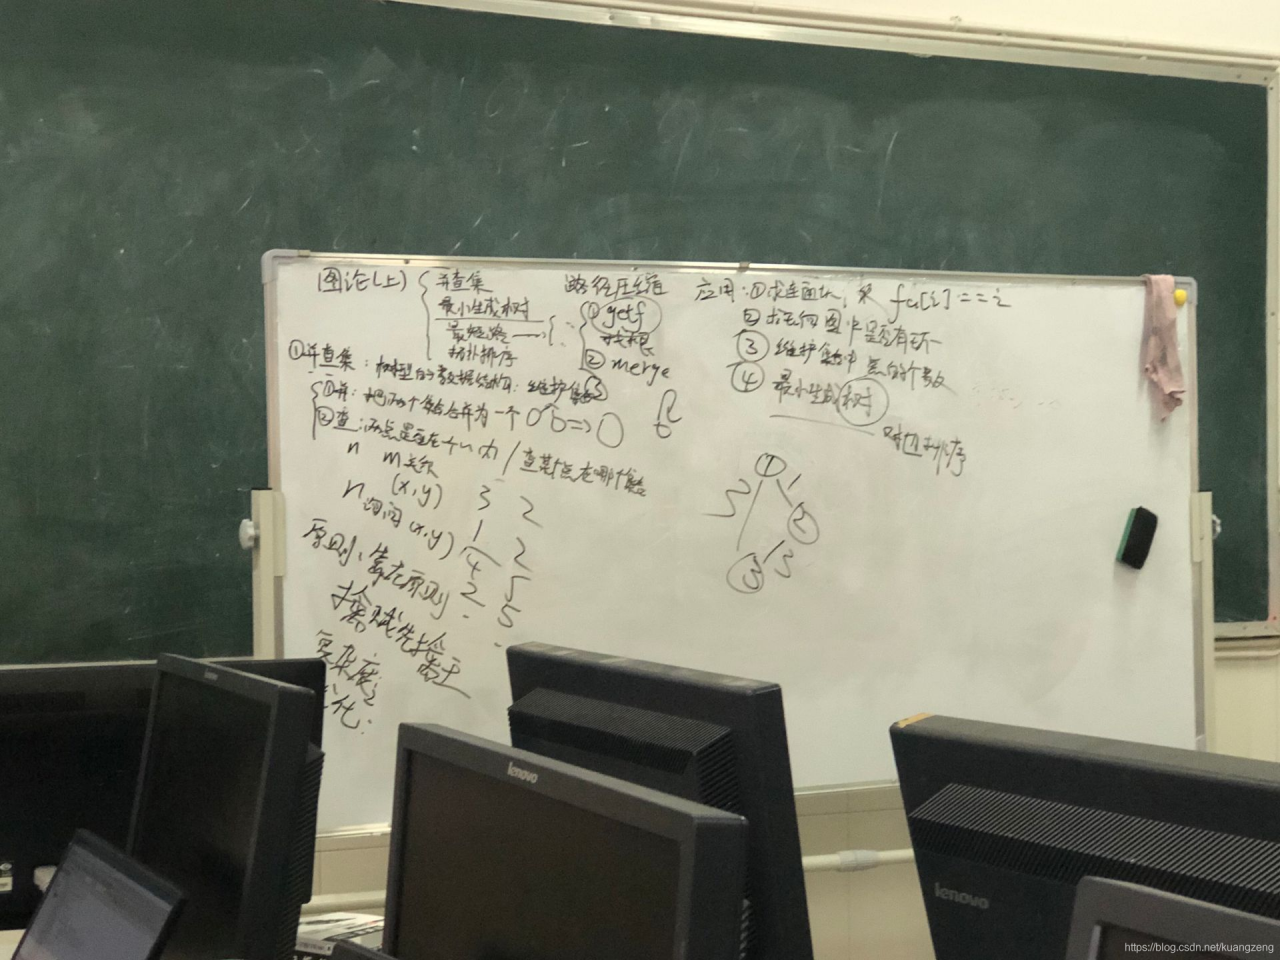 图论(上)
并查集
最小生成树
最短路
拓扑排序
路径压缩
① getf
找根
② merge
应用:①求连通块, fa[i]==i
②求无向图中是否有环
③维护集合中点的个数
④最小生成树
对边排序
①并查集:树型的数据结构:维护集合
①并:把两个集合合并为一个
②查:两点是否在一个内/查某点在哪个集合
n m关系
(x,y)
n询问(x,y)
3 2
1 2
4 5
2 5
原则:靠左原则
擒贼先擒王
复杂度:
优化:
1
1
2
2
3
3
lenovo
lenovo
https://blog.csdn.net/kuangzeng